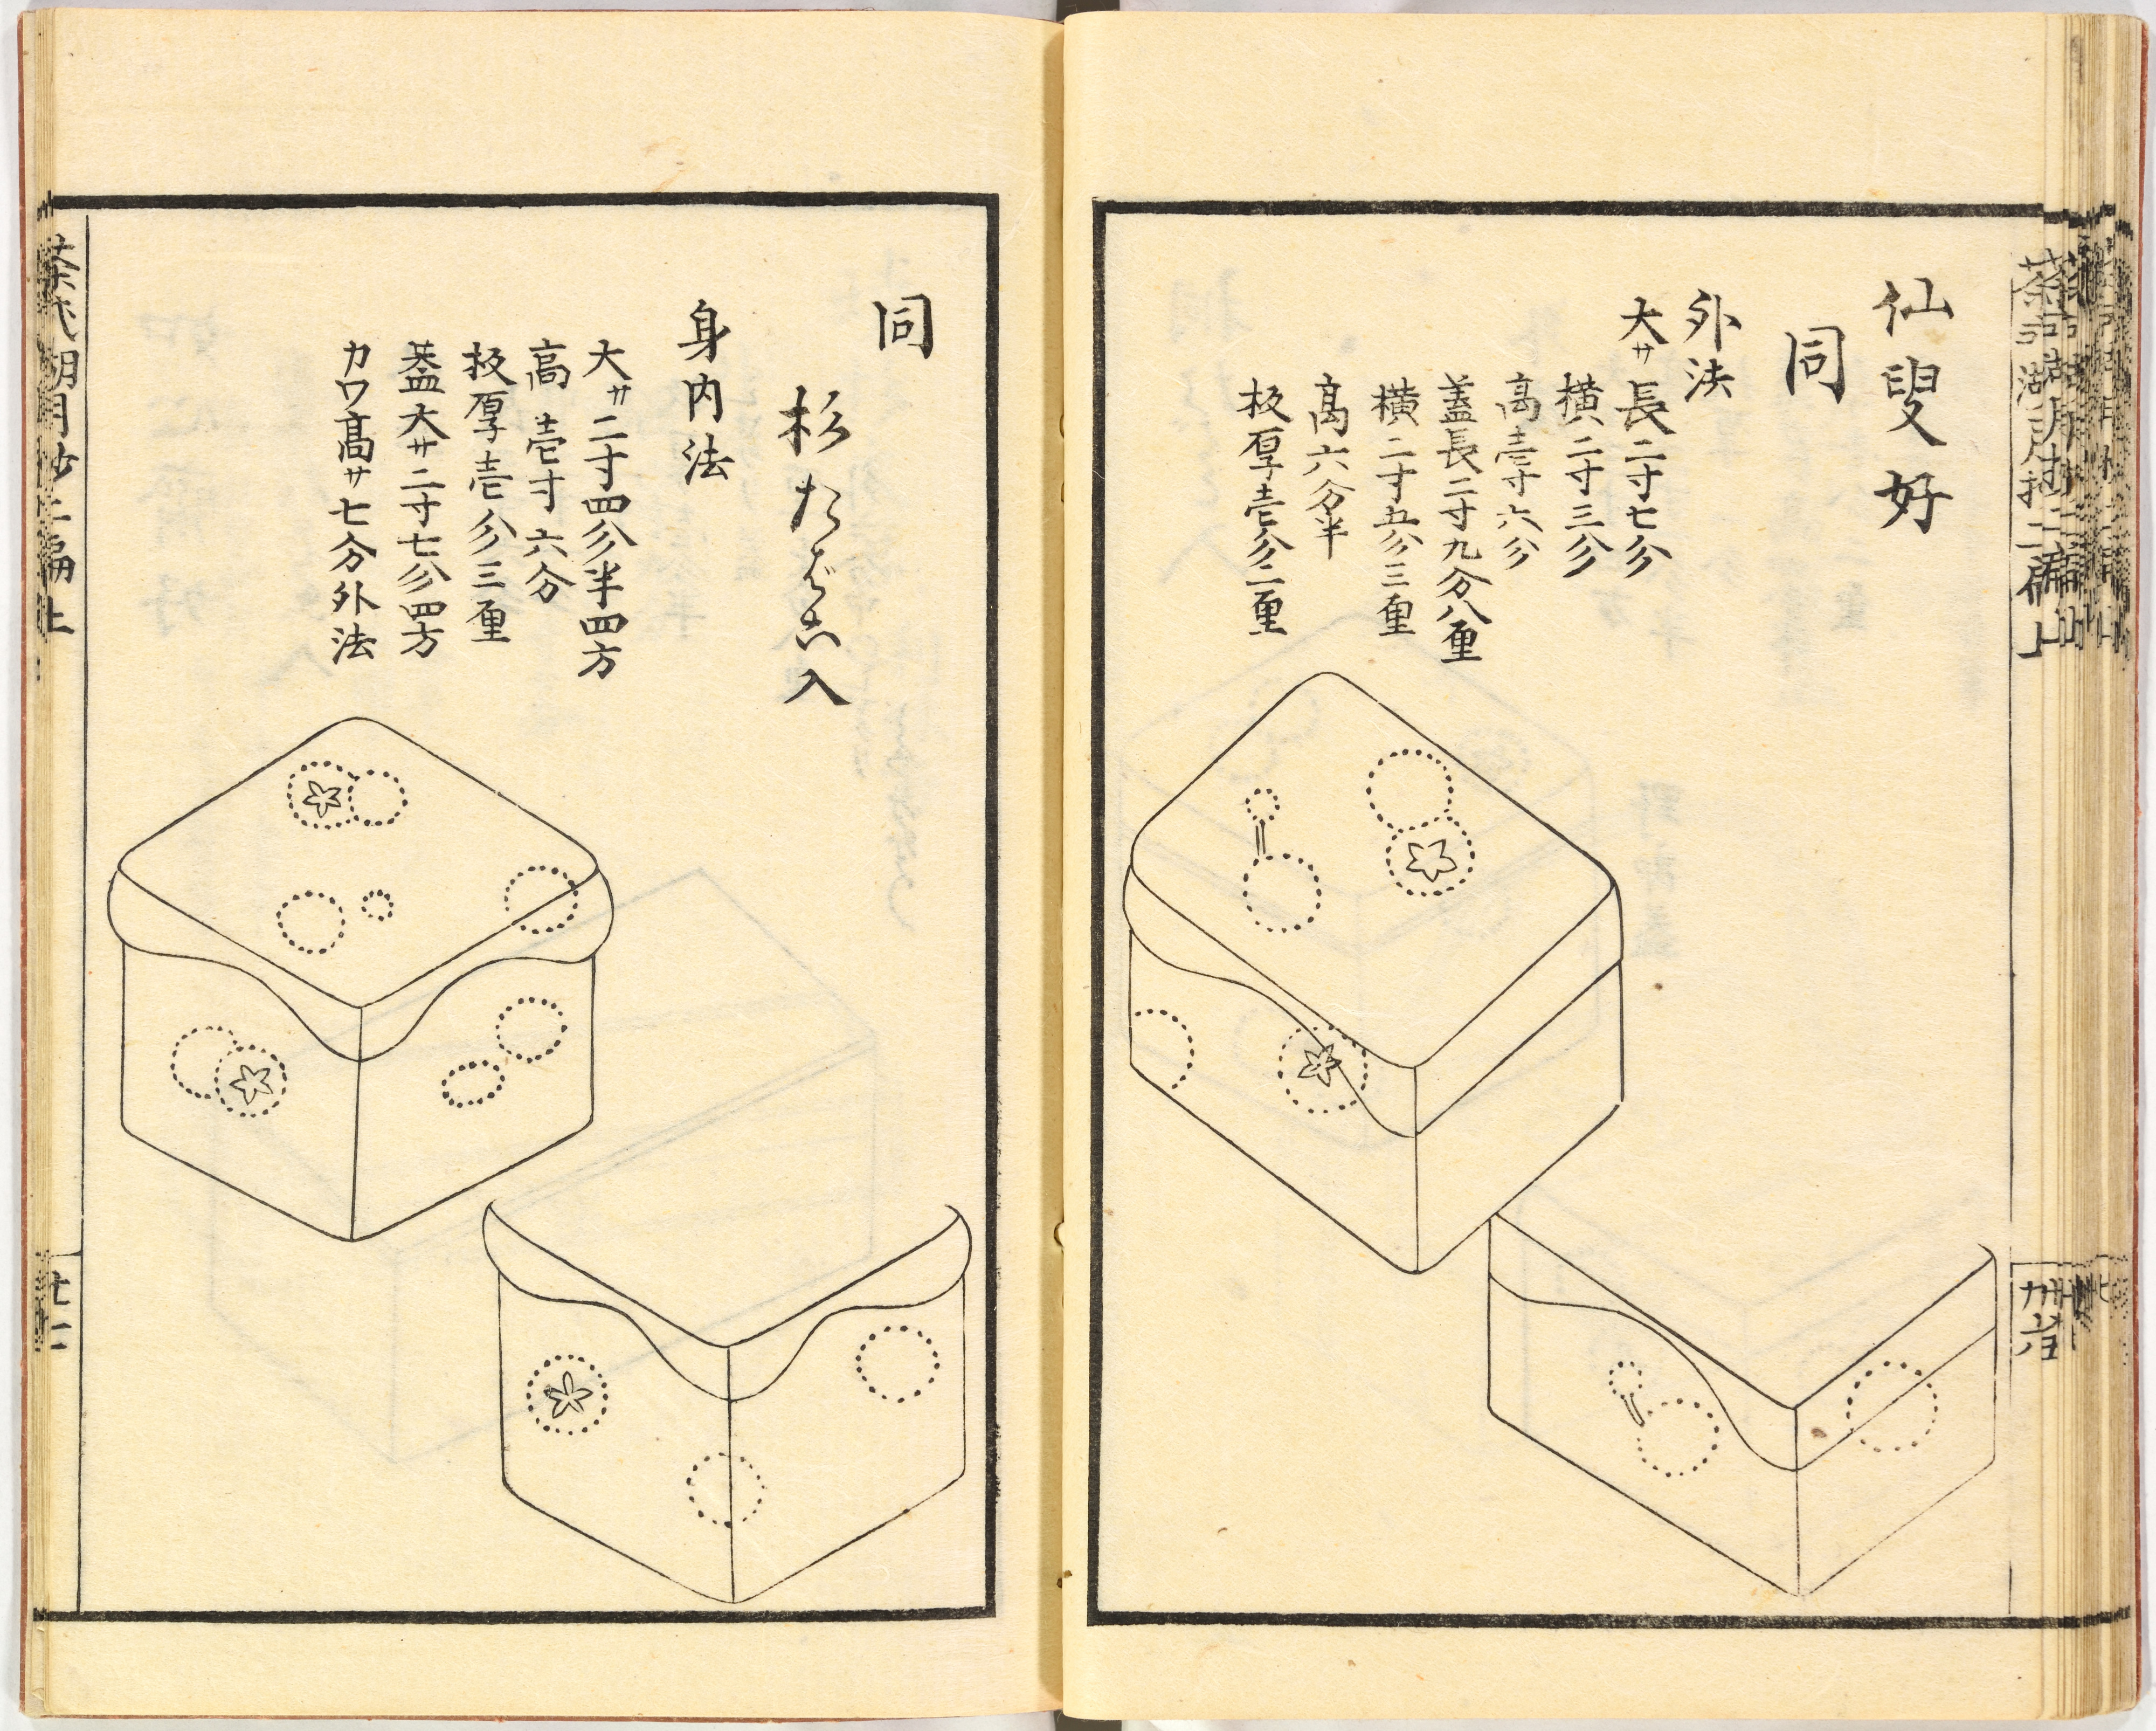 仙叟好
同
外法
大サ長二寸七分
横二寸三分
高壱寸六分
蓋長二寸九分八厘
横二寸五分三厘
高六分半
板厚壱分二厘
同
杉たばこ入
身内法
大サ二寸四分半四方
高壱寸六分
板厚壱分三厘
蓋大サ二寸七分四方
カワ高サ七分外法
茶式湖月抄二編上
廿二